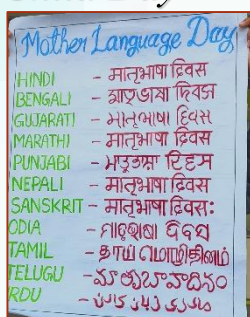 Mother Language Day
HINDI - मातृभाषा दिवस
BENGALI - মাতৃভাষা দিবস
GUJARATI - માતૃભાષા દિવસ
MARATHI - मातृभाषा दिवस
PUNJABI - ਮਾਤਭਾਸ਼ਾ ਦਿਵਸ
NEPALI - मातृभाषा दिवस
SANSKRIT - मातृभाषा दिवस:
ODIA - ମାତୃଭାଷା ଦିବସ
TAMIL - தாய் மொழிதினம்
TELUGU - మాతృభాషాదినం
RDU - مادری زبان کا دن